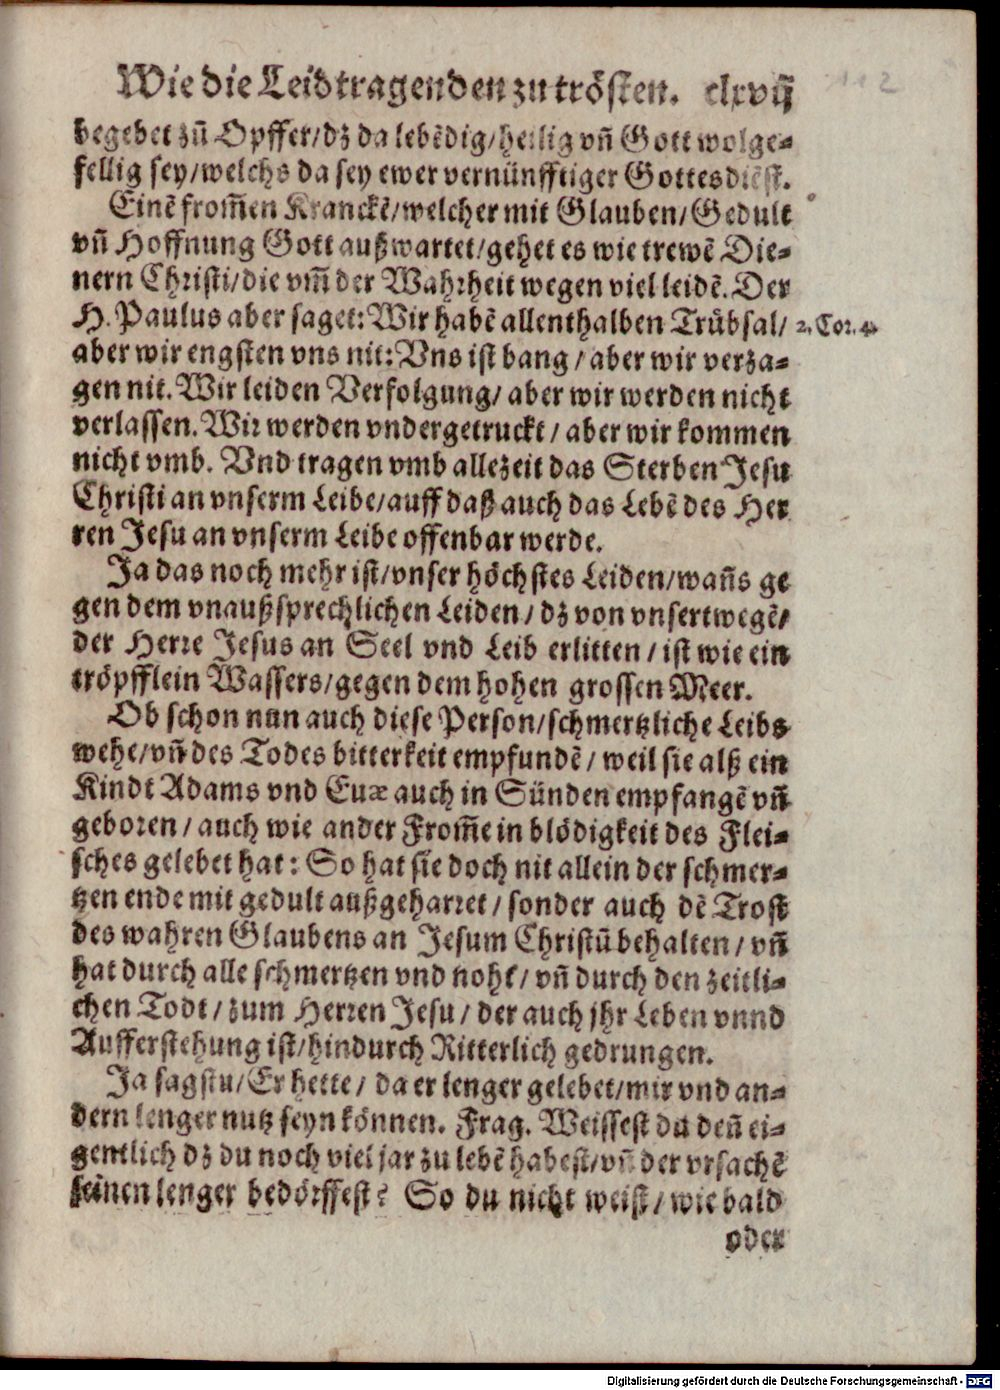 Wie die Leidtragenden zu trösten. clxvij
112
begebet zũ Opffer/dz da lebẽdig/heilig vñ Gott wolge-
fellig sey/welchs da sey ewer vernünfftiger Gottesdiẽst.
Einẽ from̃en Kranckẽ/welcher mit Glauben/Gedult
vñ Hoffnung Gott außwartet/gehet es wie trewẽ Die-
nern Christi/die vm̃ der Wahrheit wegen viel leidẽ. Der
H. Paulus aber saget: Wir habẽ allenthalben Trübsal/ 2. Cor. 4.
aber wir engsten vns nit: Vns ist bang/aber wir verza-
gen nit. Wir leiden Verfolgung/aber wir werden nicht
verlassen. Wir werden vndergetruckt/aber wir kommen
nicht vmb. Vnd tragen vmb allezeit das Sterben Jesu
Christi an vnserm Leibe/auff daß auch das Lebẽ des Her
ren Jesu an vnserm Leibe offenbar werde.
Ja das noch mehr ist/vnser höchstes Leiden/wañs ge
gen dem vnaußsprechlichen Leiden/dz von vnsertwegẽ/
der Herre Jesus an Seel vnd Leib erlitten/ist wie ein
tröpfflein Wassers/gegen dem hohen grossen Meer.
Ob schon nun auch diese Person/schmertzliche Leibs
wehe/vñ des Todes bitterkeit empfundẽ/weil sie alß ein
Kindt Adams vnd Euæ auch in Sünden empfangẽ vñ
geboren/auch wie ander From̃e in blödigkeit des Flei-
sches gelebet hat: So hat sie doch nit allein der schmer-
tzen ende mit gedult außgeharret/sonder auch dẽ Trost
des wahren Glaubens an Jesum Christũ behalten/vñ
hat durch alle schmertzen vnd noht/vñ durch den zeitli-
chen Todt/zum Herren Jesu/der auch jhr Leben vnnd
Aufferstehung ist/hindurch Ritterlich gedrungen.
Ja sagstu/Er hette/da er lenger gelebet/mir vnd an-
dern lenger nutz seyn können. Frag. Weissest du deñ ei-
gentlich dz du noch viel jar zu lebẽ habest/vñ der vrsachẽ
seinen lenger bedörffest? So du nicht weist/wie bald
oder
Digitalisierung gefördert durch die Deutsche Forschungsgemeinschaft - DFG